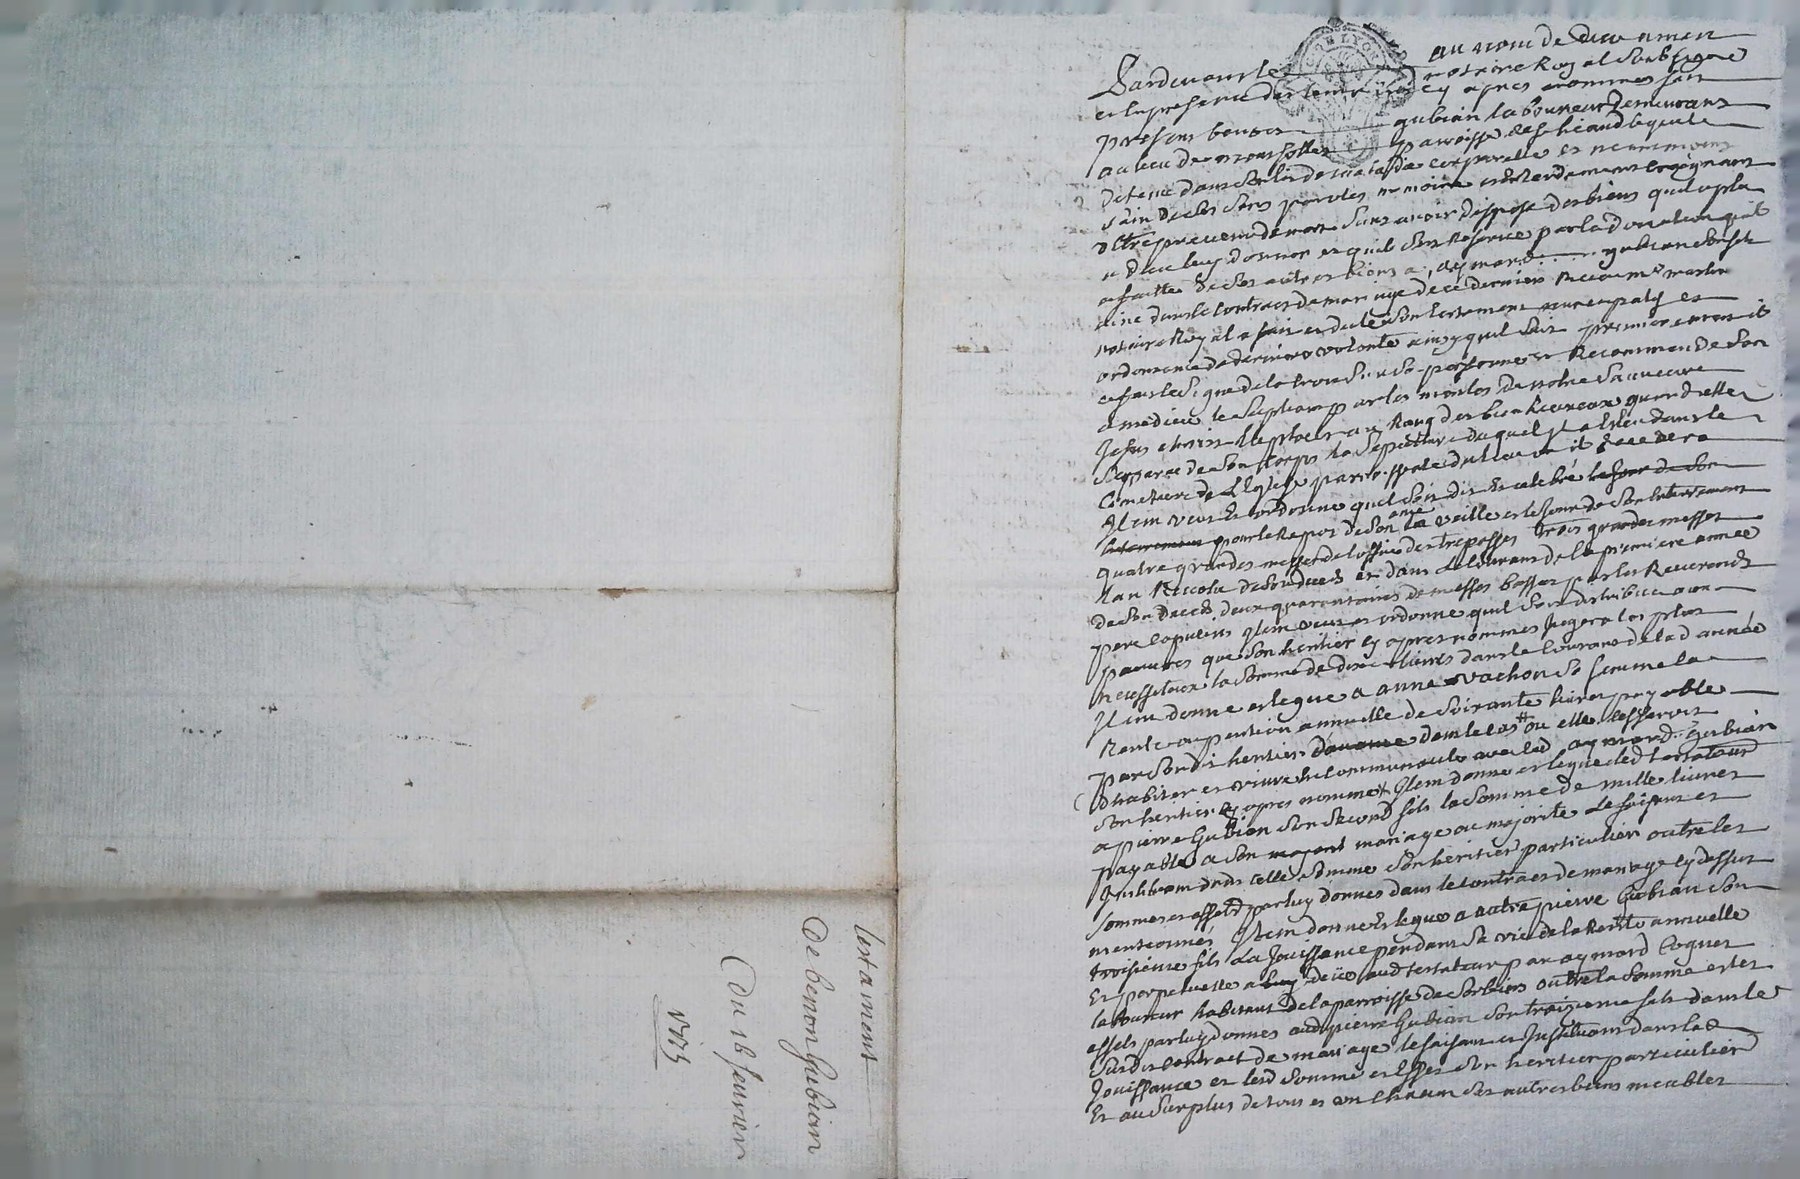 au nom de dieu amen
Pardevant le notaire Royal soubsigné
et en presence des temoins cy apres nommes fut
present benoit gubian laboureur demeurant
au lieu de paroisse lequel
detenu dans son lit de maladie corporelle et neanmoins
sain de ses sens parolles memoire et entendement craignant
d'etre prevenu de mort sans avoir dispose des biens quil a plu
a dieu luy donner et quil s'est reservé par la donation quil
a faitte de ses autres biens a aymard gubian son fils
aine dans le contract de mariage de ce dernier receu me martin
notaire Royal a fait et dicté son testament nuncupatif et
ordonnance de derniere volonté ainsy quil suit premierement il
a fait le signe de la croix sur sa personne et recommandé son
ame a dieu le supliant par les merites de notre sauveur
Jesus christ de la placer au Rang des bienheureux quand elle
separée de son corps la sepulture duquel il a eslieu dans le
Cimetiere de l'Eglise parroissiale du lieu ou il decedera
Item veut et ordonne quil soit dit et celebré le jour de son
enterrement pour le Repos de son ame la veille et le jour de son enterrement
quatre grandes messes de l'office des trepasses trois grandes messes
l'an Revolu de son deceds et dans le courant de la premiere année
de son deceds deux quarantaines de messes basses par les Reverends
pere capucins Item veut et ordonne quil soit distribué aux
pauvres que son heritier cy apres nommes jugera les plus
necessiteux la somme de dix livres dans le courant de lad année
Item donne et legue a anne vachon sa femme la
Rente ou pention annuelle de soixante livres payable
par sondit heritier davance dans le cas # ou elle cesseroit
d'habiter et vivre en communauté avec led aymard gubian
son heritier cy apres nommé # Item donne et legue led testateur
a pierre Gubian son second fils la somme de mille livres
payable a son mariage ou majorité le faisant et
Instituant dans celle somme son heritier particulier outre les
sommes et effets par luy donnes dans le contract de mariage cy dessus
mentionnés Item donne et legue a autre pierre Gubian son
troisieme fils la Jouissance pendant sa vie de la Rente annuelle
Et perpetuelle a luy deue aud testateur par aymard Coquet
laboureur habitant de la parroisse de Sorbiers outre la somme et les
effets par luy donnes aud pierre Gubian son troizieme fils dans le
susdit contract de mariage le faisant et Instituant dans lad
Jouissance et lesd somme et effets son heritier particulier
Et au surplus de tous et un chacun ses autres biens meubles
testament
de benoit gubian
Du 18 fevrier
1773